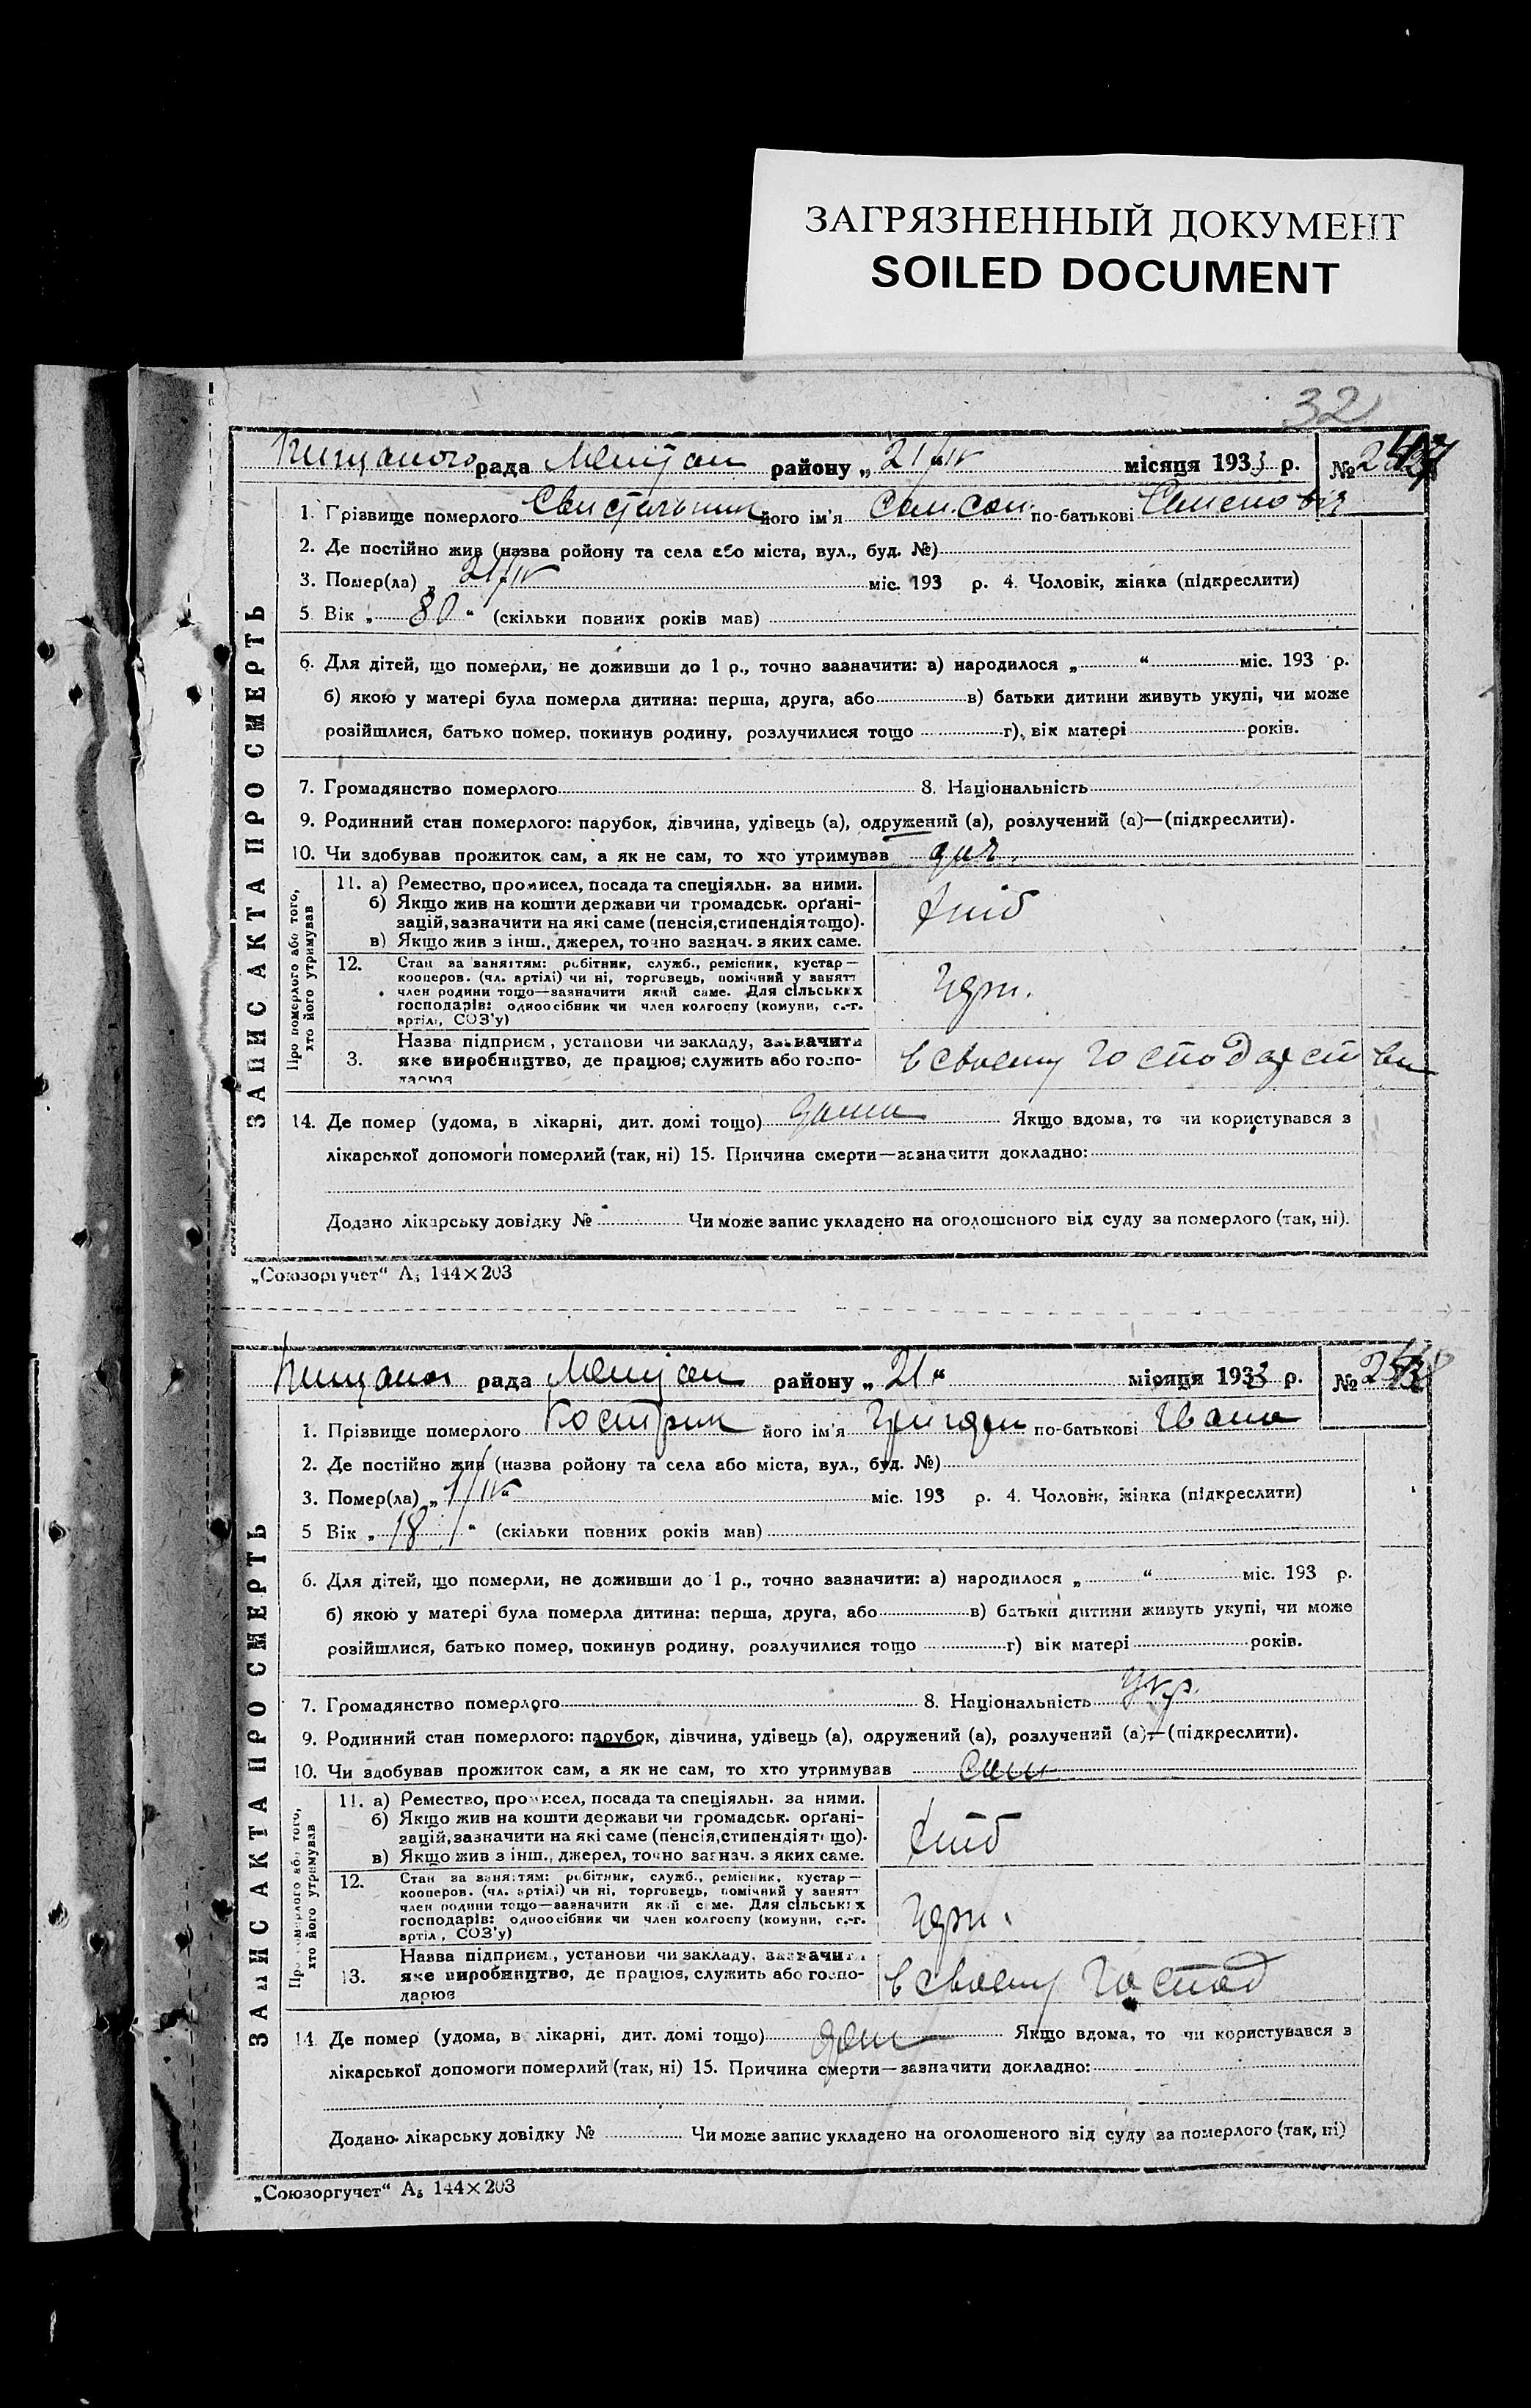 ЗАГРЯЗНЕННЫЙ ДОКУМЕНТ
SOILED DOCUMENT
32
рада району „ 21/IV місяця 1933 р. №
1. Прізвище померлого Свистельник його ім'я Самсон по-батькові Семенович
2. Де постійно жив (назва району та села або міста, вул., буд. №)
3. Помер(ла) „ 21/IV міс. 193 р. 4. Чоловік, жінка (підкреслити)
5 Вік „ 80 “ (скільки повних років мав)
6. Для дітей, що померли, не доживши до 1 р., точно зазначити: а) народилося „ “ міс. 193 р.
б) якою у матері була померла дитина: перша, друга, або в) батьки дитини живуть укупі, чи може
розійшлися, батько помер, покинув родину, розлучилися тощо г) вік матері років.
7. Громадянство померлого 8. Національність
9. Родинний стан померлого: парубок, дівчина, удівець (а), одружений (а), розлучений (а)—(підкреслити).
10. Чи здобував прожиток сам, а як не сам, то хто утримував
ЗАПИС АКТА ПРО СМЕРТЬ
Про померлого або того,
хто його утримував
11. а) Ремество, промисел, посада та спеціяльн. за ними.
б) Якщо жив на кошти держави чи громадськ. орґані-
зацій, зазначити на які саме (пенсія, стипендія тощо).
в) Якщо жив з інш., джерел, точно зазнач. з яких саме.
хліб
12. Стан за заняттям: робітник, служб., ремісник, кустар—
кооперов. (чл. артілі) чи ні, торговець, помічний у занятт
член родини тощо—зазначити який саме. Для сільських
господарів: одноосібник чи член колгоспу (комуни, с.-г.
артілі, СОЗ'у)
3. Назва підприєм., установи чи закладу, зазначити
яке виробництво, де працює, служить або госпо-
дарює
в своему господарстви
14. Де помер (удома, в лікарні, дит. домі тощо) дома Якщо вдома, то чи користувався з
лікарської допомоги померлий (так, ні) 15. Причина смерти—зазначити докладно:
Додано лікарську довідку № Чи може запис укладено на оголошеного від суду за померлого (так, ні).
„Союзоргучет“ А₅ 144×203
рада району „ 21 “ місяця 1933 р. №
1. Прізвище померлого Кострик його ім'я Григори по-батькові Ивана
2. Де постійно жив (назва району та села або міста, вул., буд. №)
3. Помер(ла) „ 1/IV “ міс. 193 р. 4. Чоловік, жінка (підкреслити)
5 Вік „ 18 “ (скільки повних років мав)
6. Для дітей, що померли, не доживши до 1 р., точно зазначити: а) народилося „ “ міс. 193 р.
б) якою у матері була померла дитина: перша, друга, або в) батьки дитини живуть укупі, чи може
розійшлися, батько помер, покинув родину, розлучилися тощо г) вік матері років.
7. Громадянство померлого 8. Національність Укр.
9. Родинний стан померлого: парубок, дівчина, удівець (а), одружений (а), розлучений (а)—(підкреслити).
10. Чи здобував прожиток сам, а як не сам, то хто утримував сам
ЗАПИС АКТА ПРО СМЕРТЬ
Про померлого або того,
хто його утримував
11. а) Ремество, промисел, посада та спеціяльн. за ними.
б) Якщо жив на кошти держави чи громадськ. орґані-
зацій, зазначити на які саме (пенсія, стипендія тощо).
в) Якщо жив з інш., джерел, точно зазнач. з яких саме.
хліб
12. Стан за заняттям: робітник, служб., ремісник, кустар—
кооперов. (чл. артілі) чи ні, торговець, помічний у занятт
член родини тощо—зазначити який саме. Для сільських
господарів: одноосібник чи член колгоспу (комуни, с.-г.
артіл, СОЗ'у)
13. Назва підприєм., установи чи закладу, зазначити
яке виробництво, де працює, служить або госпо-
дарює
в своему господ
14. Де помер (удома, в лікарні, дит. домі тощо) дом Якщо вдома, то чи користувався з
лікарської допомоги померлий (так, ні) 15. Причина смерти—зазначити докладно:
Додано лікарську довідку № Чи може запис укладено на оголошеного від суду за померлого (так, ні)
„Союзоргучет“ А₅ 144×203